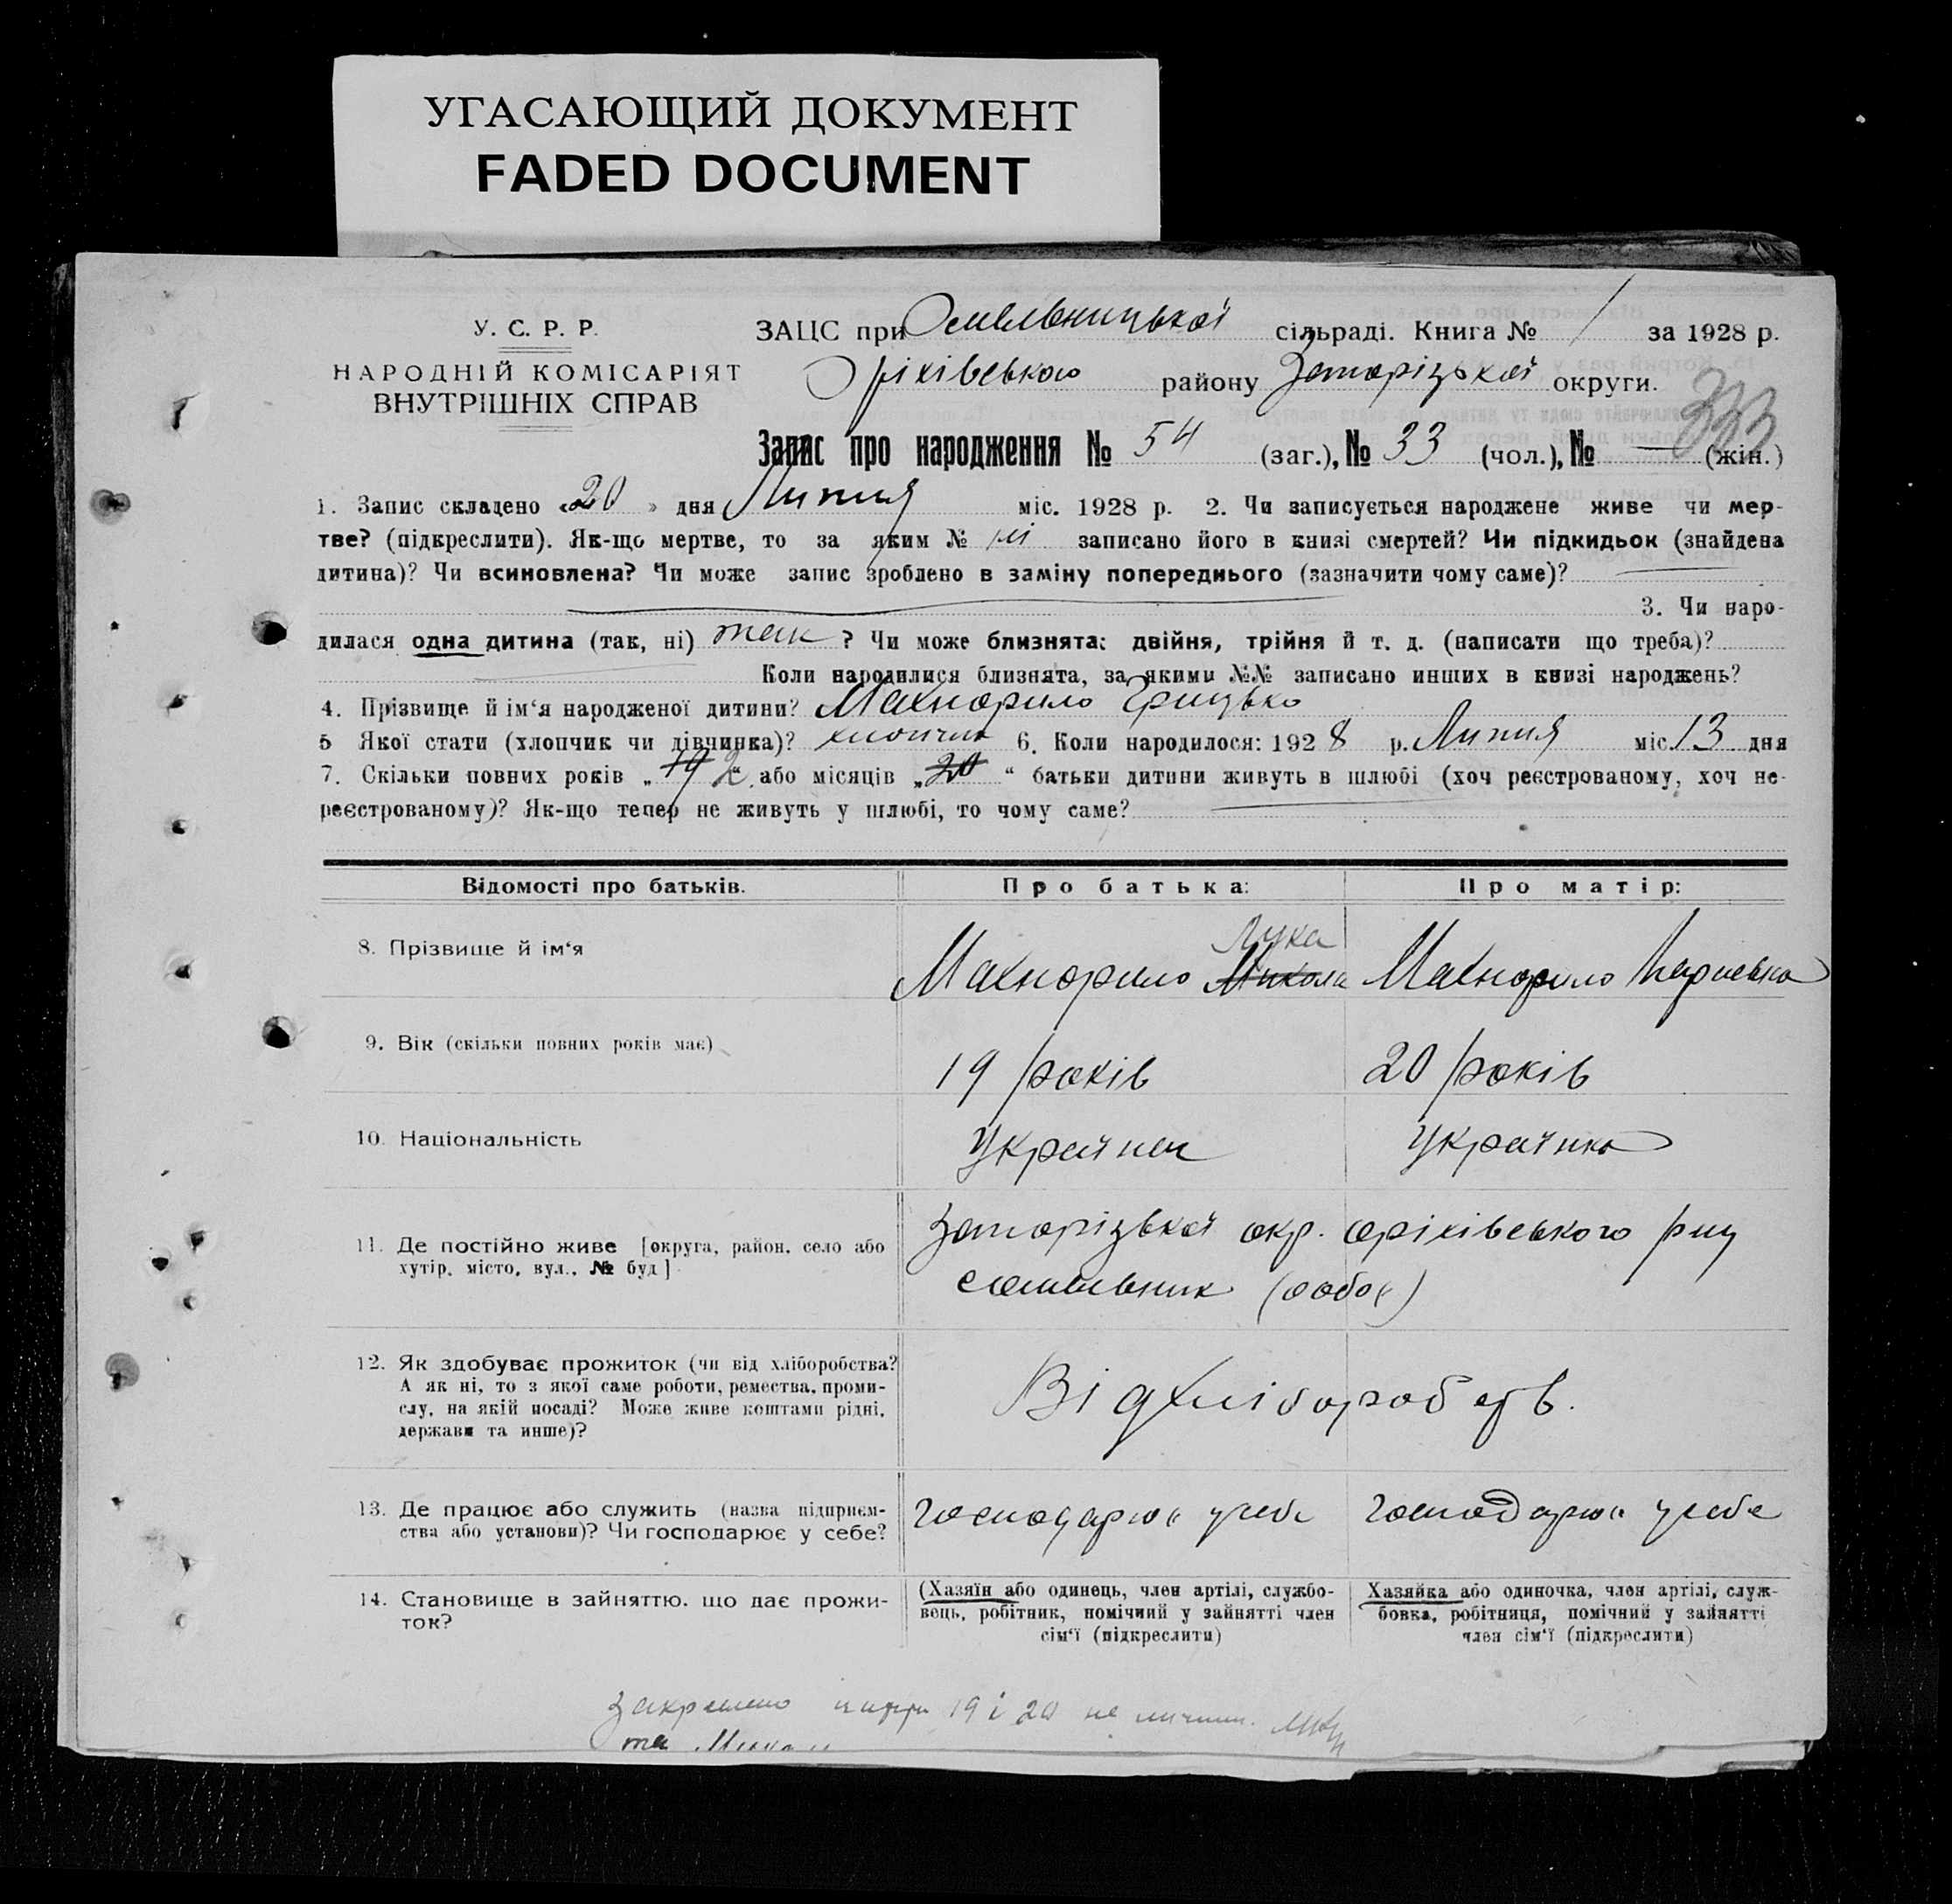 УГАСАЮЩИЙ ДОКУМЕНТ
FADED DOCUMENT
У. С. Р. Р.
НАРОДНІЙ КОМІСАРІЯТ
ВНУТРІШНІХ СПРАВ
ЗАЦС при Омельницької сільраді. Книга № 1 за 1928 р.
Оріхівського району Запорізької округи.
333
Запис про народження № 54 (заг.), № 33 (чол.), № — (жін.)
1. Запис складено «20» дня Липня міс. 1928 р. 2. Чи записується народжене живе чи мер-
тве? (підкреслити). Як-що мертве, то за яким № ні записано його в книзі смертей? Чи підкидьок (знайдена
дитина)? Чи всиновлена? Чи може запис зроблено в заміну попереднього (зазначити чому саме)?
3. Чи наро-
дилася одна дитина (так, ні) так ? Чи може близнята: двійня, трійня й т. д. (написати що треба)?
Коли народилися близнята, за якими №№ записано инших в книзі народжень?
4. Прізвище й ім‘я народженої дитини? Махнорило Грицько
5 Якої стати (хлопчик чи дівчинка)? хлопчик 6. Коли народилося: 1928 р. Липня міс. 13 дня
7. Скільки повних років „19 2“ або місяців „20“ батьки дитини живуть в шлюбі (хоч реєстрованому, хоч не-
реєстрованому)? Як-що тепер не живуть у шлюбі, то чому саме?
Відомості про батьків. Про батька: Про матір:
8. Прізвище й ім‘я
Лука
Махнорило Микола Махнорило
9. Вік (скільки повних років має)
19 років 20 років
10. Національність
Українец Українка
11. Де постійно живе [округа, район, село або
хутір, місто, вул., № буд]
Запорізької окр. оріхівського рну
(обоє)
12. Як здобуває прожиток (чи від хліборобства?
А як ні, то з якої саме роботи, ремества, проми-
слу, на якій посаді? Може живе коштами рідні,
держави та инше)?
Від хліборобств.
13. Де працює або служить (назва підприєм-
ства або установи)? Чи господарює у себе?
Господарює у себе Господарює у себе
14. Становище в зайняттю, що дає прожи-
ток?
(Хазяїн або одинець, член артілі, службо-
вець, робітник, помічний у зайнятті член
сім‘ї (підкреслити)
Хазяйка або одиночка, член артілі, служ-
бовка, робітниця, помічний у зайнятті
член сім‘ї (підкреслити)
Закреслено цифри 19 і 20 не личити.
та Микола